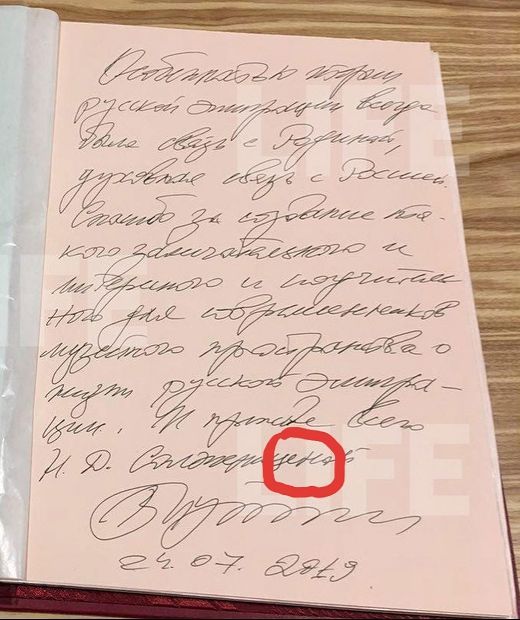 Особенностью первой
русской эмиграции всегда
была связь с Родиной,
духовная связь с Россией.
Спасибо за создание та-
кого замечательного и
интересного и поучитель
ного для современников
музейного пространства о
жизни русской эмигра-
ции. И прежде всего
Н. Д. Солжениценой
24.07.2019
LIFE
LIFE
LIFE